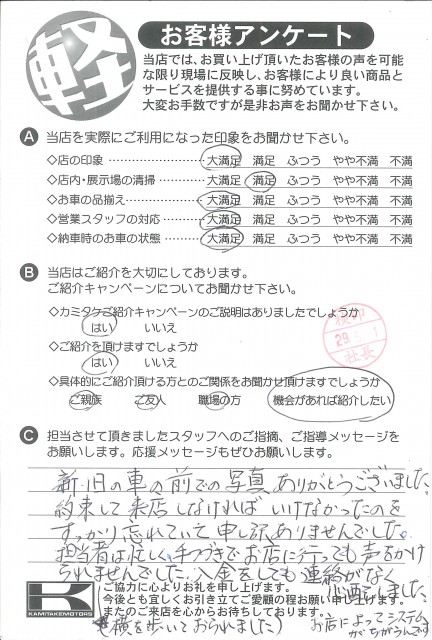 軽
お客様アンケート
当店では、お買い上げ頂いたお客様の声を可能
な限り現場に反映し、お客様により良い商品と
サービスを提供する事に努めています。
大変お手数ですが是非お声をお聞かせ下さい。
A 当店を実際にご利用になった印象をお聞かせ下さい。
◇店の印象 ………………… 大満足 満足 ふつう やや不満 不満
◇店内・展示場の清掃 ………… 大満足 満足 ふつう やや不満 不満
◇お車の品揃え ……………… 大満足 満足 ふつう やや不満 不満
◇営業スタッフの対応 ………… 大満足 満足 ふつう やや不満 不満
◇納車時のお車の状態 ………… 大満足 満足 ふつう やや不満 不満
B 当店はご紹介を大切にしております。
ご紹介キャンペーンについてお聞かせ下さい。
◇カミタケご紹介キャンペーンのご説明はありましたでしょうか
はい いいえ
◇ご紹介を頂けますでしょうか
はい いいえ
29.
社長
◇具体的にご紹介頂ける方とのご関係をお聞かせ頂けますでしょうか
ご親族 ご友人 職場の方 機会があれば紹介したい
C 担当させて頂きましたスタッフへのご指摘、ご指導メッセージを
お願いします。応援メッセージもぜひお願いします。
新旧の車の前での写真、ありがとうございました。
約束して来店しなければいけなかったのを
すっかり忘れていて申し訳ありませんでした。
担当者は忙しい 手つづきでお店に行っても声をかけ
られませんでした。入金をしても連絡がなく
心配しました。
K
KAMITAKEMOTORS
ご協力に心よりお礼を申し上げます。
今後とも宜しくお引き立てご愛顧の程お願い申し上げます。
またのご来店を心からお待ちしております。
横を歩いておられました)
お店によってシステム
がちがうんです